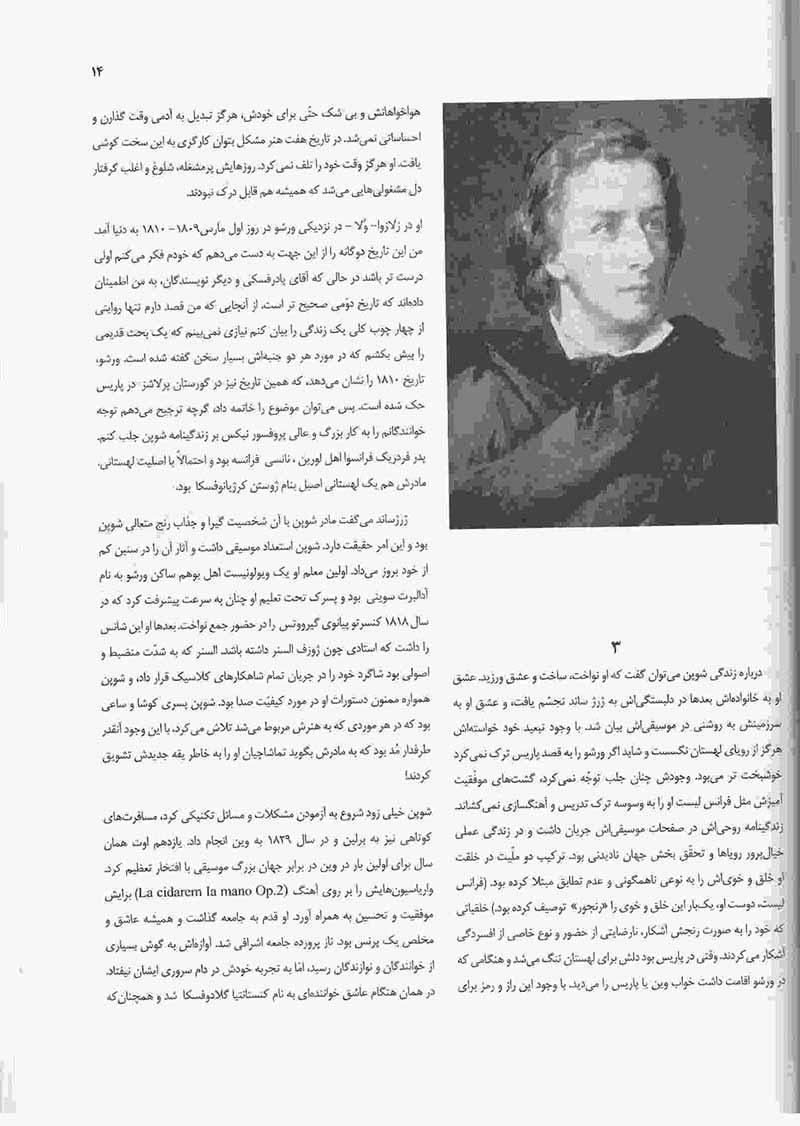 ۱۴
۳
درباره زندگی شوپن می‌توان گفت که او نواخت، ساخت و عشق ورزید. عشق
او به خانواده‌اش بعدها در دلبستگی‌اش به ژرژ ساند تجسّم یافت، و عشق او به
سرزمینش به روشنی در موسیقی‌اش بیان شد. با وجود تبعید خود خواسته‌اش
هرگز از رویای لهستان نگسست و شاید اگر ورشو را به قصد پاریس ترک نمی‌کرد
خوشبخت تر می‌بود. وجودش چنان جلب توجّه نمی‌کرد، گشت‌های موفّقیت
آمیزش مثل فرانس لیست او را به وسوسه ترک تدریس و آهنگسازی نمی‌کشاند.
زندگینامه روحی‌اش در صفحات موسیقی‌اش جریان داشت و در زندگی عملی
خیال‌پرور رویاها و تحقّق بخش جهان نادیدنی بود. ترکیب دو ملّیت در خلقت
او خلق و خوی‌اش را به نوعی ناهمگونی و عدم تطابق مبتلا کرده بود. (فرانس
لیست، دوست او، یک‌بار این خلق و خوی را «رنجور» توصیف کرده بود.) خلقیاتی
که خود را به صورت رنجش آشکار، نارضایتی از حضور و نوع خاصی از افسردگی
آشکار می‌کردند. وقتی در پاریس بود دلش برای لهستان تنگ می‌شد و هنگامی که
در ورشو اقامت داشت خواب وین یا پاریس را می‌دید. با وجود این راز و رمز برای
هواخواهانش و بی شک حتّی برای خودش، هرگز تبدیل به آدمی وقت گذارن و
احساساتی نمی‌شد. در تاریخ هفت هنر مشکل بتوان کارگری به این سخت کوشی
یافت. او هرگز وقت خود را تلف نمی‌کرد. روزهایش پرمشغله، شلوغ و اغلب گرفتار
دل مشغولی‌هایی می‌شد که همیشه هم قابل درک نبودند.
او در زلازوا- وُلا - در نزدیکی ورشو در روز اول مارس۱۸۰۹- ۱۸۱۰ به دنیا آمد.
من این تاریخ دوگانه را از این جهت به دست می‌دهم که خودم فکر می‌کنم اولی
درست تر باشد در حالی که آقای پادرفسکی و دیگر نویسندگان، به من اطمینان
داده‌اند که تاریخ دوّمی صحیح تر است. از آنجایی که من قصد دارم تنها روایتی
از چهار چوب کلی یک زندگی را بیان کنم نیازی نمی‌بینم که یک بحث قدیمی
را پیش بکشم که در مورد هر دو جنبه‌اش بسیار سخن گفته شده است. ورشو،
تاریخ ۱۸۱۰ را نشان می‌دهد، که همین تاریخ نیز در گورستان پرلاشز در پاریس
حک شده است. پس می‌توان موضوع را خاتمه داد، گرچه ترجیح می‌دهم توجه
خوانندگانم را به کار بزرگ و عالی پروفسور نیکس بر زندگینامه شوپن جلب کنم.
پدر فردریک فرانسوا اهل لورین ، نانسی فرانسه بود و احتمالاً با اصلیت لهستانی.
مادرش هم یک لهستانی اصیل بنام ژوستن کرژیانوفسکا بود.
ژرژساند می‌گفت مادر شوپن با آن شخصیت گیرا و جذاب رنج متعالی شوپن
بود و این امر حقیقت دارد. شوپن استعداد موسیقی داشت و آثار آن را در سنین کم
از خود بروز می‌داد. اولین معلم او یک ویولونیست اهل بوهم ساکن ورشو به نام
آدالبرت سوینی بود و پسرک تحت تعلیم او چنان به سرعت پیشرفت کرد که در
سال ۱۸۱۸ کنسرتو پیانوی گیرووتس را در حضور جمع نواخت. بعدها او این شانس
را داشت که استادی چون ژوزف السنر داشته باشد. السنر که به شدّت منضبط و
اصولی بود شاگرد خود را در جریان تمام شاهکارهای کلاسیک قرار داد، و شوپن
همواره ممنون دستورات او در مورد کیفیّت صدا بود. شوپن پسری کوشا و ساعی
بود که در هر موردی که به هنرش مربوط می‌شد تلاش می‌کرد، با این وجود آنقدر
طرفدار مُد بود که به مادرش بگوید تماشاچیان او را به خاطر یقه جدیدش تشویق
کردند!
شوپن خیلی زود شروع به آزمودن مشکلات و مسائل تکنیکی کرد، مسافرت‌های
کوتاهی نیز به برلین و در سال ۱۸۲۹ به وین انجام داد. یازدهم اوت همان
سال برای اولین بار در وین در برابر جهان بزرگ موسیقی با افتخار تعظیم کرد.
واریاسیون‌هایش را بر روی آهنگ (La cidarem la mano Op.2) برایش
موفقیت و تحسین به همراه آورد. او قدم به جامعه گذاشت و همیشه عاشق و
مخلص یک پرنس بود. ناز پرورده جامعه اشرافی شد. آوازه‌اش به گوش بسیاری
از خوانندگان و نوازندگان رسید، امّا به تجربه خودش در دام سروری ایشان نیفتاد.
در همان هنگام عاشق خواننده‌ای به نام کنستانتیا گلادوفسکا شد و همچنان‌که